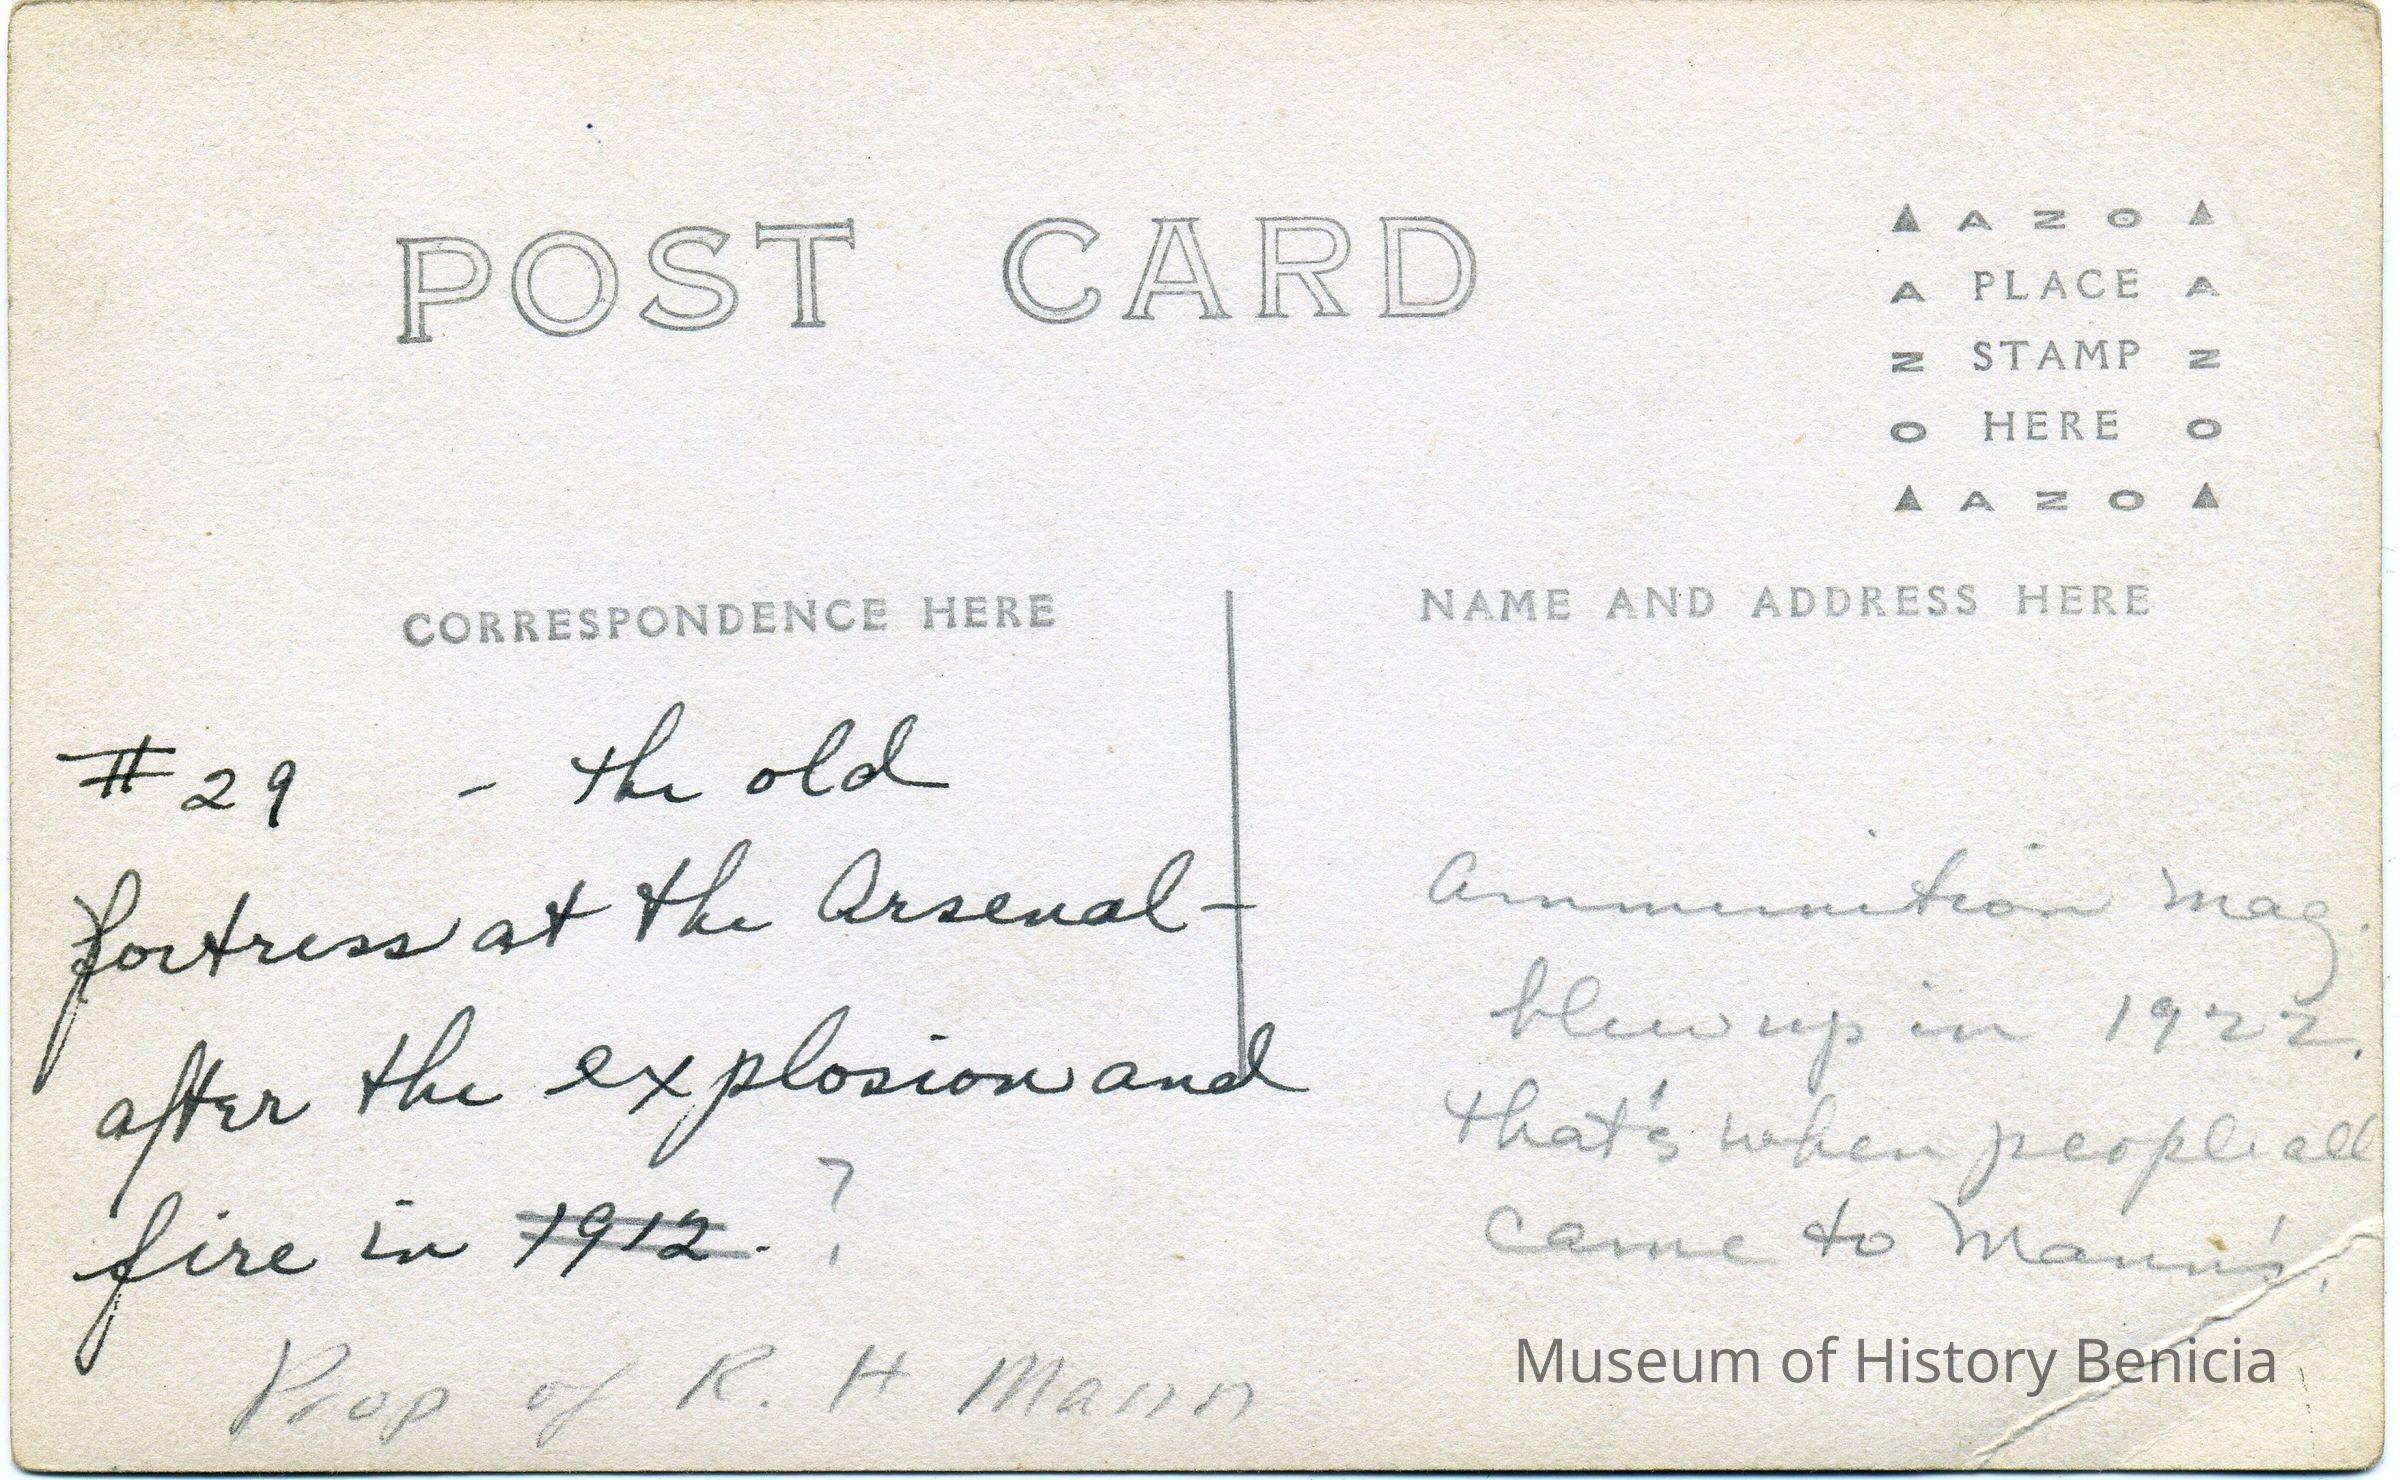 POST CARD
▲ A Z O ▲
A PLACE A
Z STAMP Z
O HERE O
▲ A Z O ▲
CORRESPONDENCE HERE
NAME AND ADDRESS HERE
#29 - the old
fortress at the Arsenal-
after the explosion and
fire in 1912. ?
Prop of R. H Mann
Ammunition Mag.
blew up in 1922.
that's when people all
came to Mann's.
Museum of History Benicia